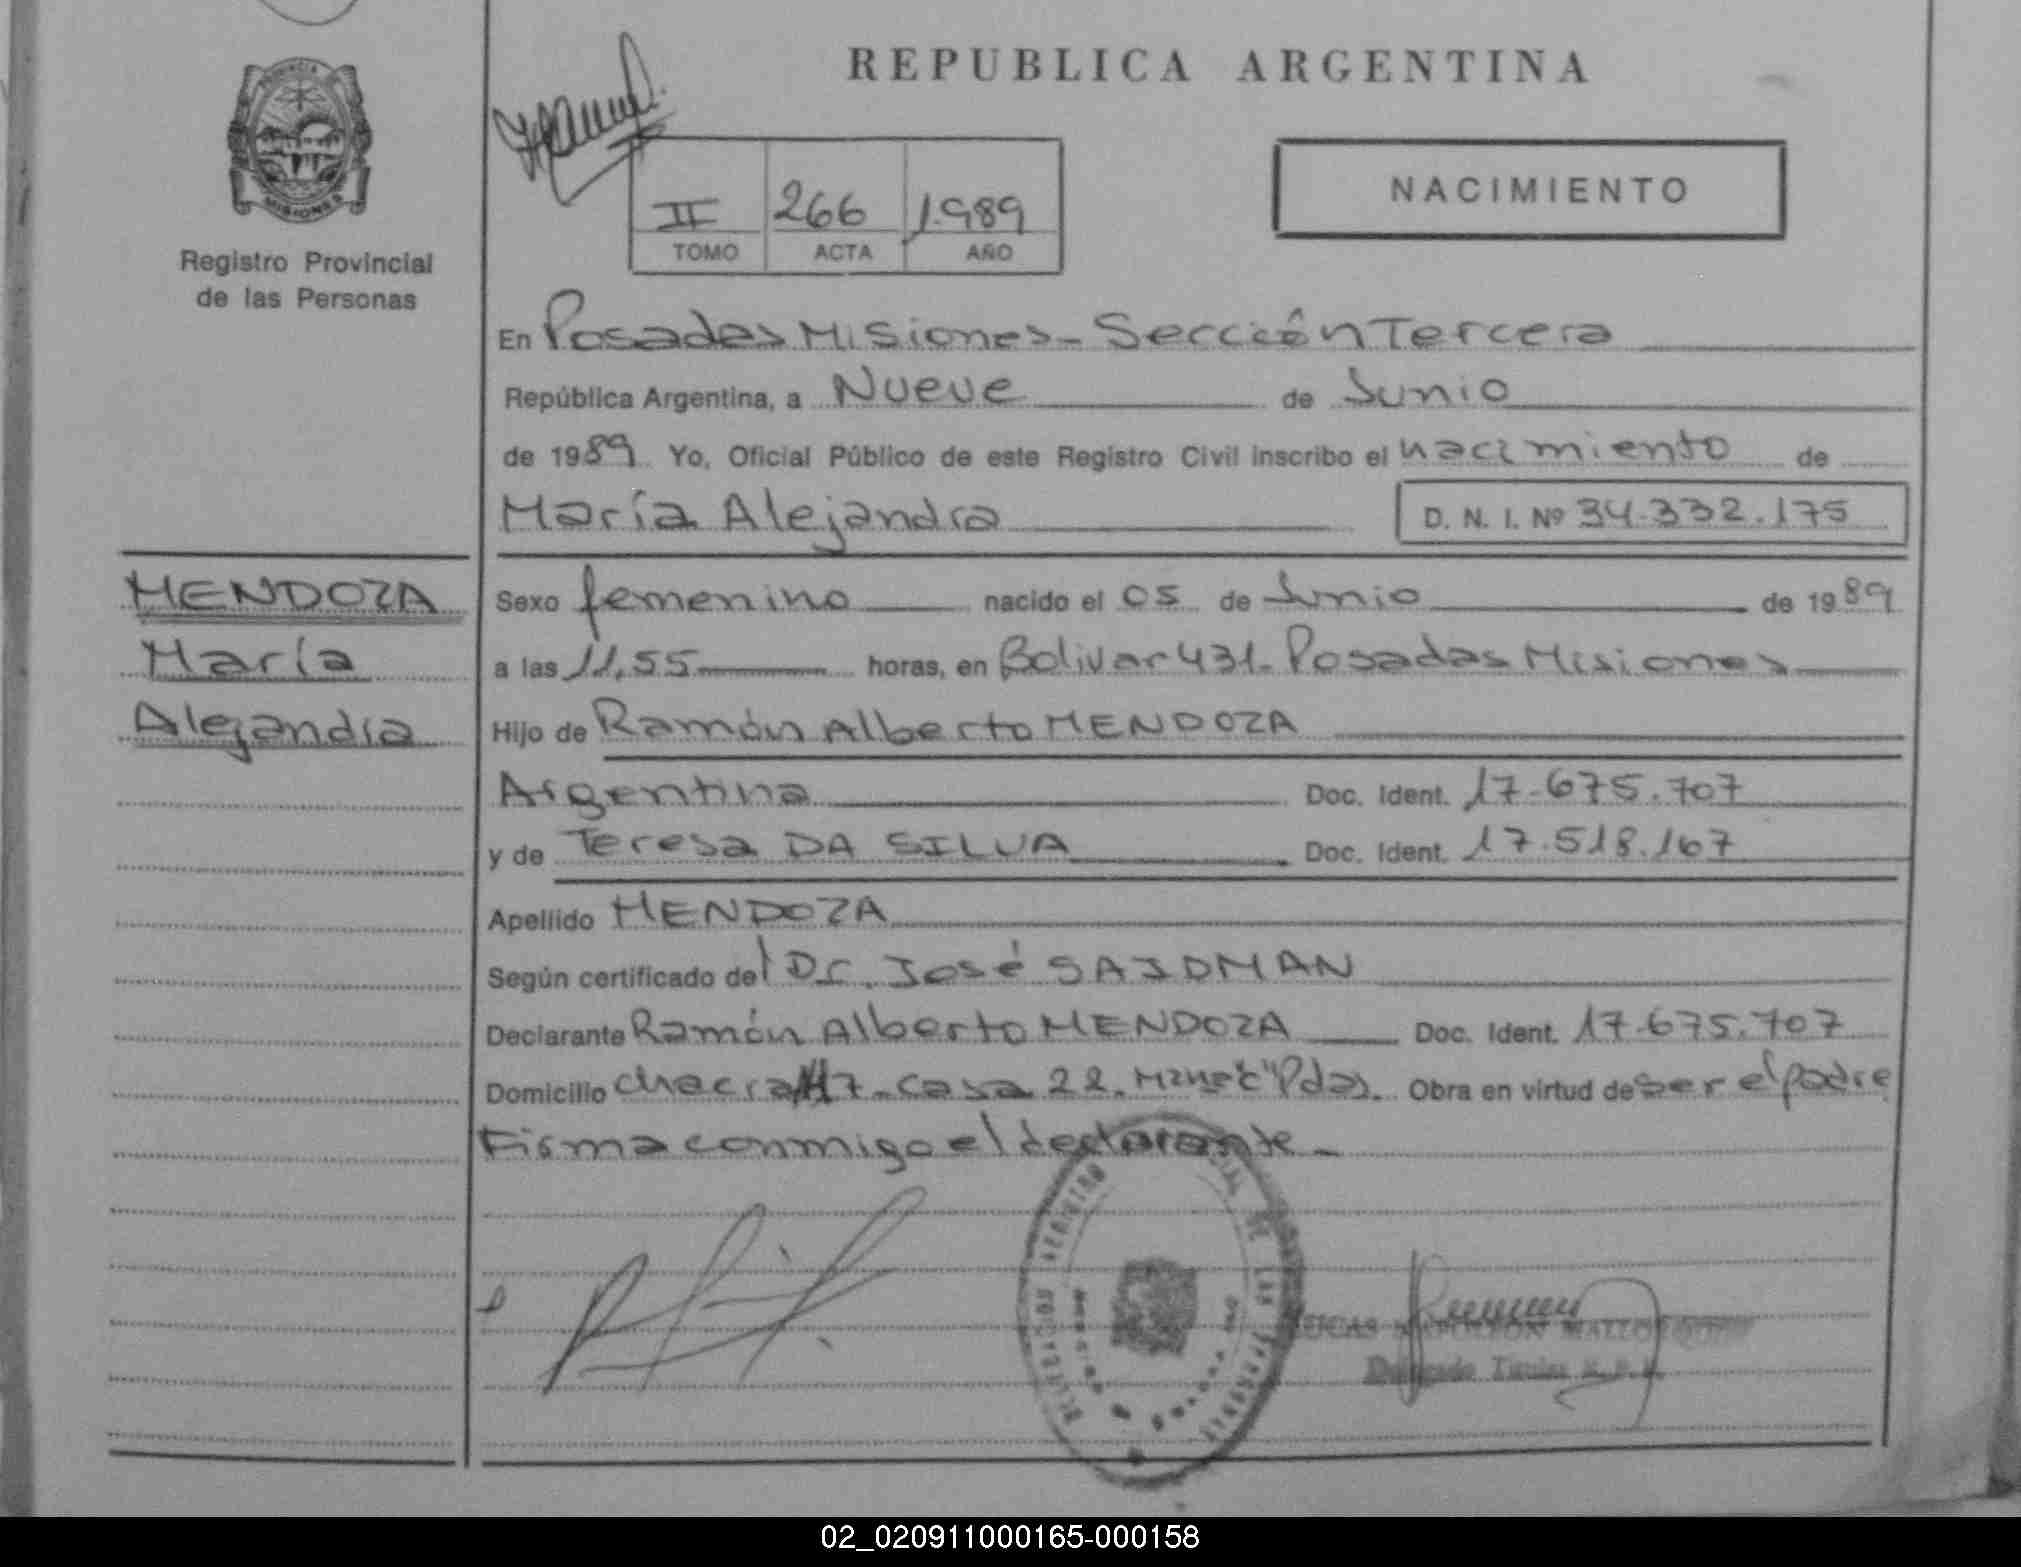 REPUBLICA ARGENTINA
PROVINCIA
MISIONES
Registro Provincial
de las Personas
II 266 1.989
TOMO ACTA AÑO
NACIMIENTO
En Posadas Misiones - Sección Tercera
República Argentina, a Nueve de Junio
de 1989 Yo, Oficial Público de este Registro Civil inscribo el nacimiento de
María Alejandra
D. N. I. Nº 34.332.175
MENDOZA
María
Alejandra
Sexo femenino nacido el 05 de Junio de 1989
a las 11,55 horas, en Bolivar 431. Posadas Misiones
Hijo de Ramón Alberto MENDOZA
Argentina Doc. Ident. 17.675.707
y de Teresa DA SILVA Doc. Ident. 17.518.167
Apellido MENDOZA
Según certificado del Dr. José SAIDMAN
Declarante Ramón Alberto MENDOZA Doc. Ident. 17.675.707
Domicilio chacra 117 - casa 22. "C" Pdas. Obra en virtud de ser el padre
Firma conmigo el declarante -
REGISTRO PROVINCIAL DE LAS PERSONAS
NAPOLEON
Delegado Titular
02_020911000165-000158